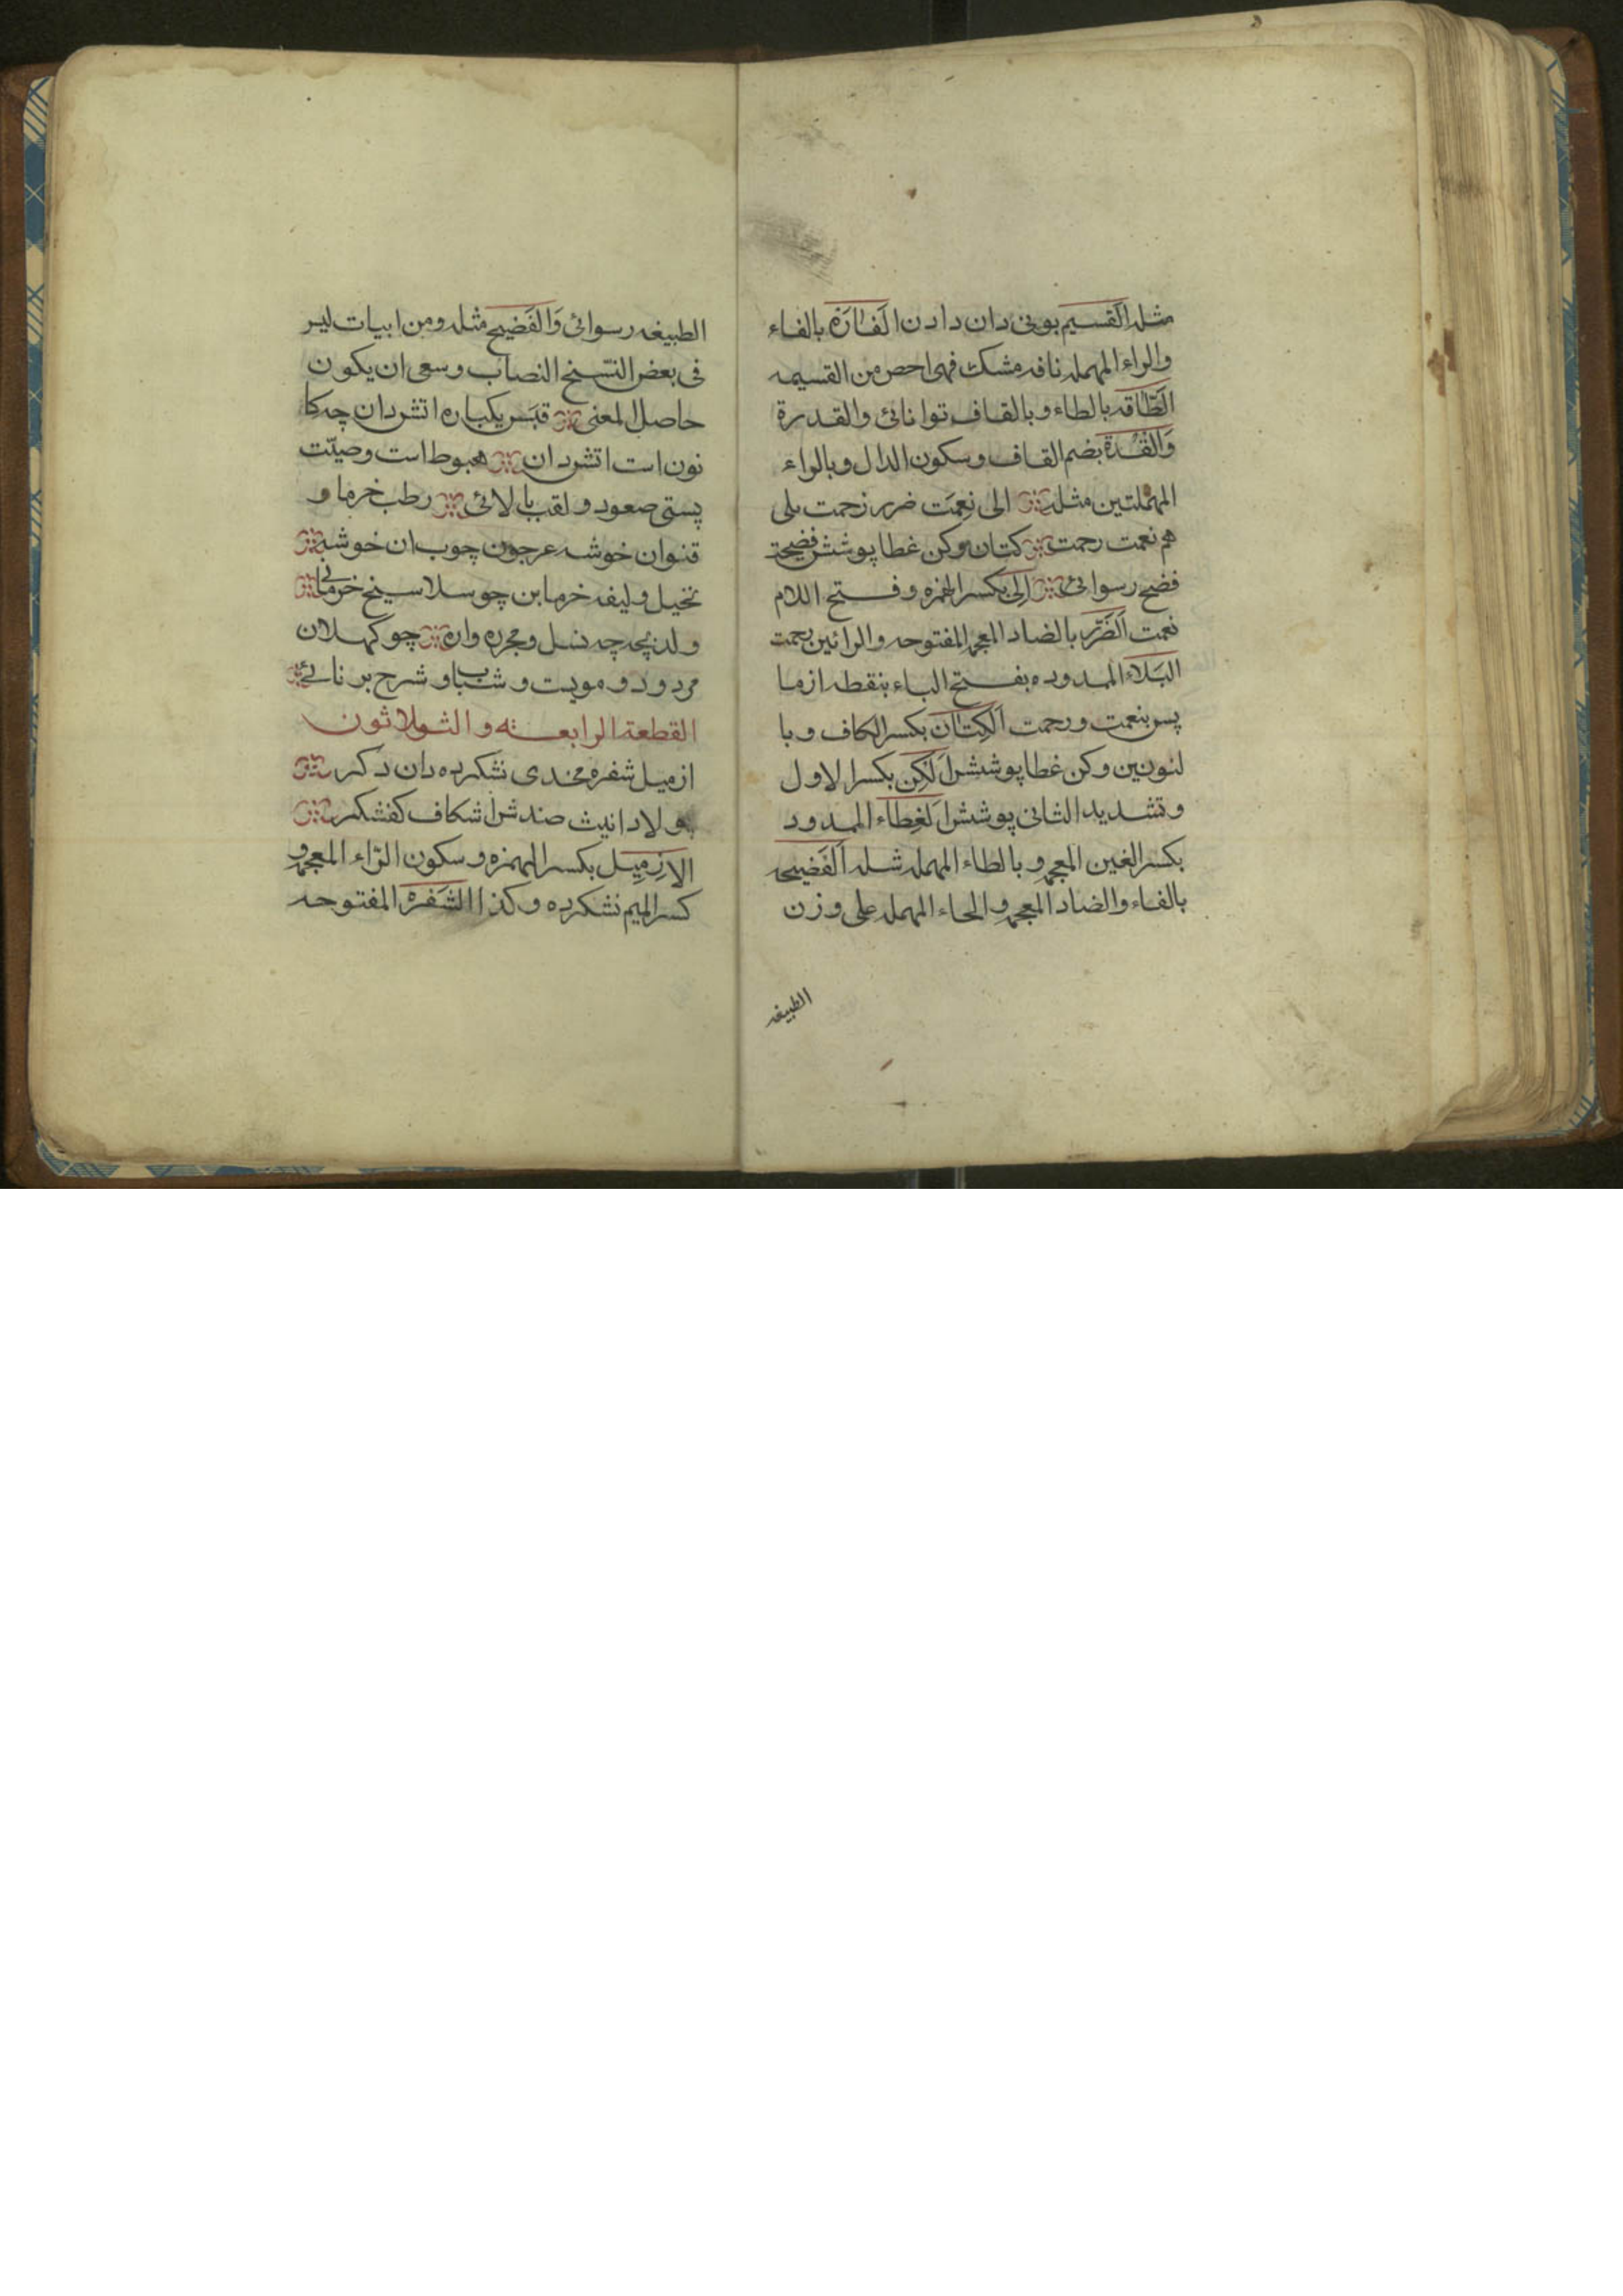 مثله القسيم بوی دان دادن الفارة بالفاء
والراء المهمله نافه مشك فهی اخص من القسيمه
الطاقه بالطاء وبالقاف توانائی والقدرة
والقدرة بضم القاف وسكون الدال وبالراء
المهملتين مثله الی نعمت ضرر زحمت بلی
هم نعمت رحمت كتان وكن غطا پوشش فضيحة
فضح رسوائی الی بكسر الهمزه وفتح اللام
نعمت الضرر بالضاد المعجمه المفتوحه والرائين زحمت
البلاء الممدوده بفتح الباء بنقطه ازما
پس بنعمت ورحمت الكتان بكسر الكاف وبا
لنونين وكن غطا پوشش الكن بكسر الاول
وتشديد الثانی پوشش الغطاء الممدود
بكسر الغين المعجمه وبالطاء المهمله مثله الفضيحه
بالفاء والضاد المعجمه والحاء المهمله علی وزن
الطبيغه
الطبيغه رسوائی والفضيح مثله ومن ابيات لير
فی بعض النسخ النصاب وسعی ان يكون
حاصل المعنی قبس يكباره اتش دان چه كا
نون است اتش دان هبوط است وصيت
پستی صعود ولقب بالائی رطب خرما و
قنوان خوشه عرجون چوب ان خوشه
نخيل وليفه خرما بن چو سلا سيخ خرمائی
ولد بچه چه نسل و واره چو كهلان
مرد ودو مويست وشباب وشرح برنائی
القطعة الرابعه والثلاثون
ازميل شفره مخدی نشكرده دان دكر
لاد انيث صندش اشكاف كفشكر
الازميل بكسر الهمزه وسكون الزاء المعجمه و
كسر الميم نشكرده وكذا الشفره المفتوحه